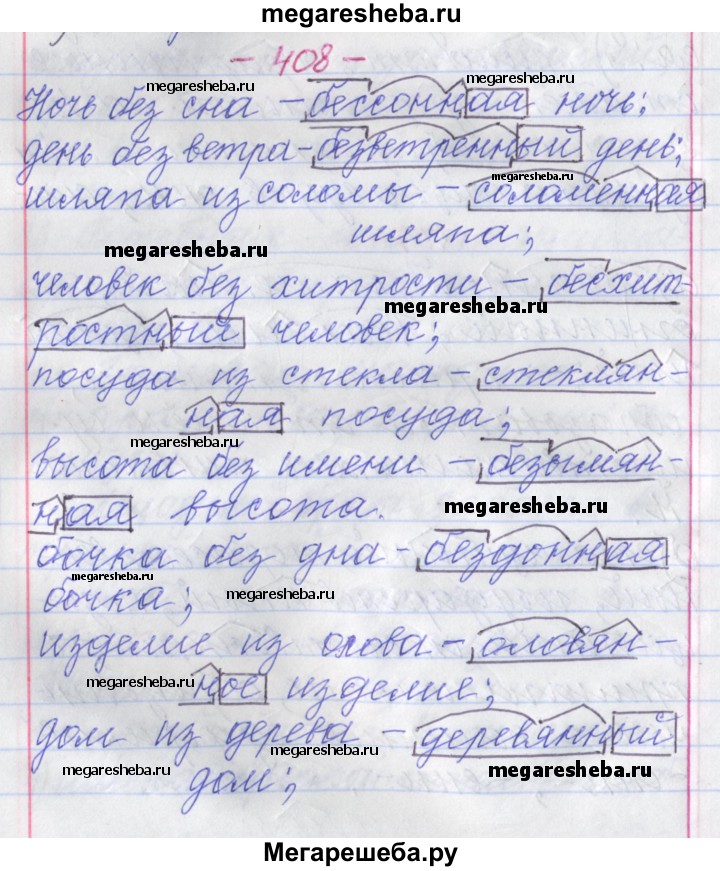 megaresheba.ru
- 408 -
megaresheba.ru
Ночь без сна - бессонная ночь;
megaresheba.ru
день без ветра - безветренный день;
megaresheba.ru
шляпа из соломы - соломенная
шляпа;
megaresheba.ru
человек без хитрости - бесхит-
megaresheba.ru
ростный человек;
посуда из стекла - стеклян-
ная посуда;
megaresheba.ru
высота без имени - безымян-
ная высота.
megaresheba.ru
бочка без дна - бездонная
megaresheba.ru
бочка;
megaresheba.ru
изделие из олова - оловян-
megaresheba.ru
ное изделие;
дом из дерева - деревянный
megaresheba.ru
megaresheba.ru
дом;
megaresheba.ru
Мегарешеба.ру